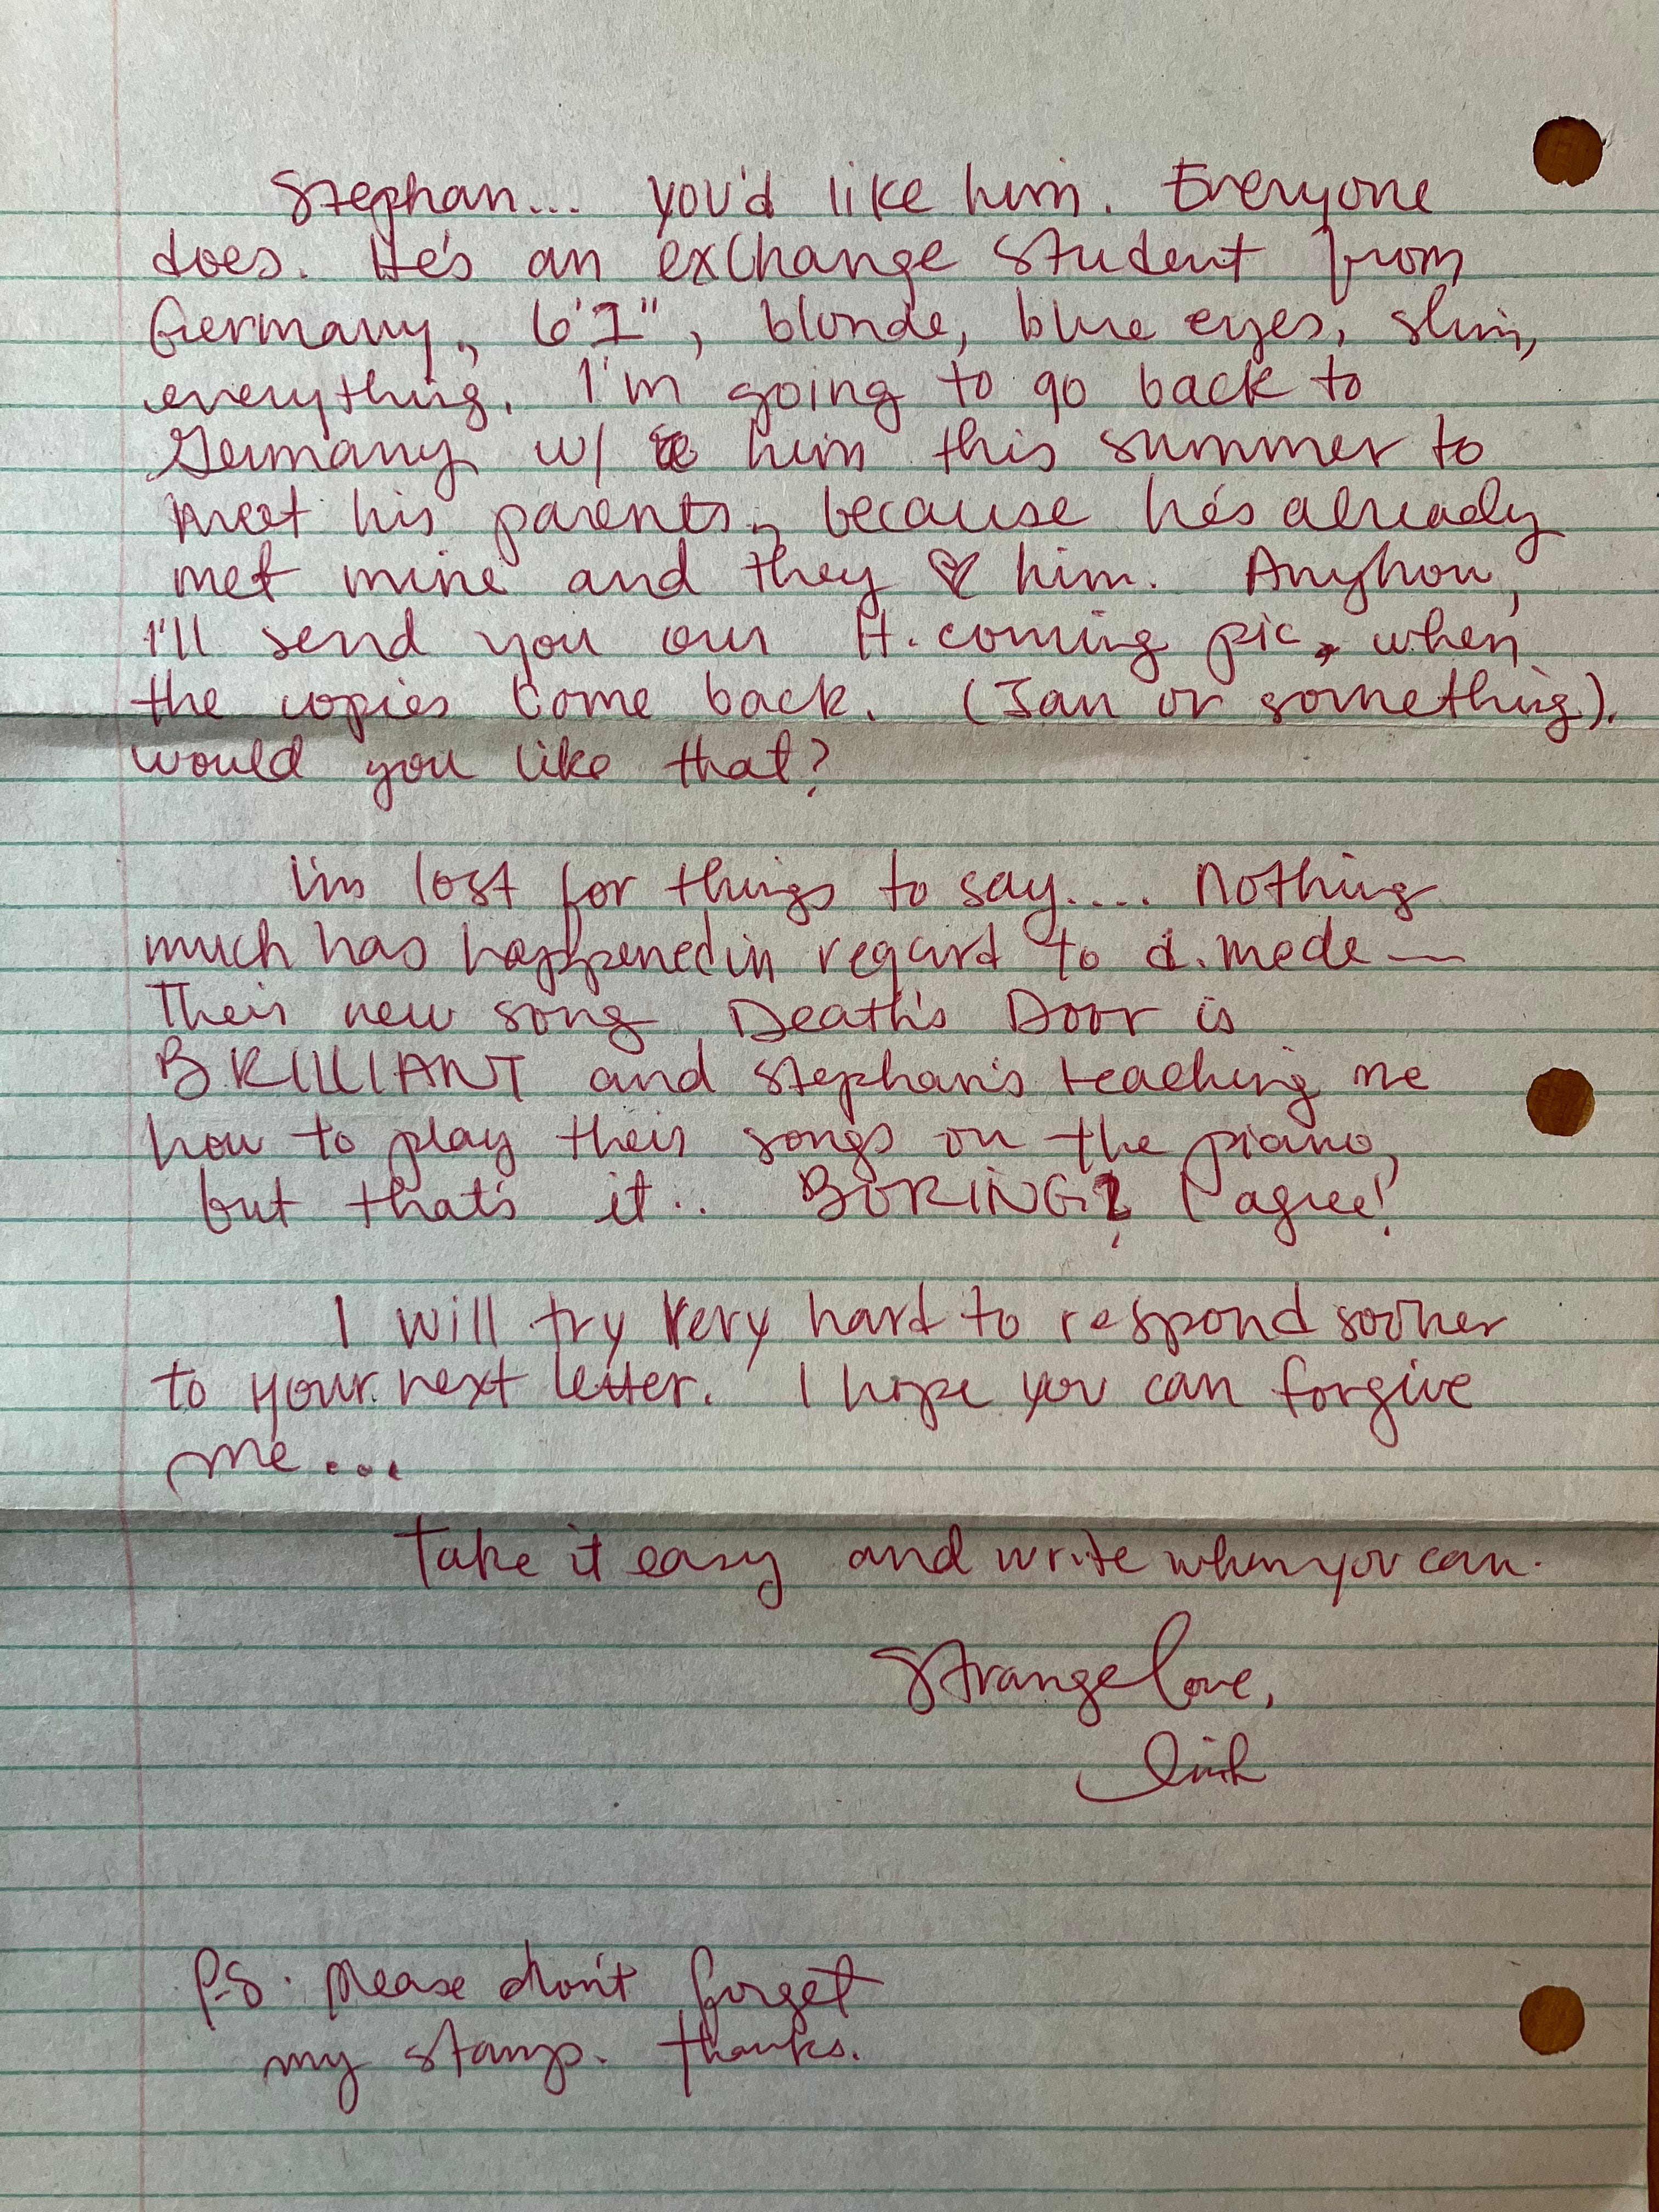 Stephan... you'd like him. Everyone
does. He's an exchange student from
Germany, 6'1", blonde, blue eyes, slim,
everything. I'm going to go back to
Germany w/ him this summer to
meet his parents, because he's already
met mine and they ♡ him. Anyhow,
I'll send you our H.coming pic, when
the copies come back. (Jan or something).
would you like that?
I'm lost for things to say.... nothing
much has happened in regard to d. mode —
Their new song Death's Door is
BRILLIANT and Stephan's teaching me
how to play their songs on the piano,
but that's it.. BORING? I agree!
I will try very hard to respond sooner
to your next letter. I hope you can forgive
me...
Take it easy and write when you can.
Strangelove,
P.S. Please don't forget
my stamp. thanks.